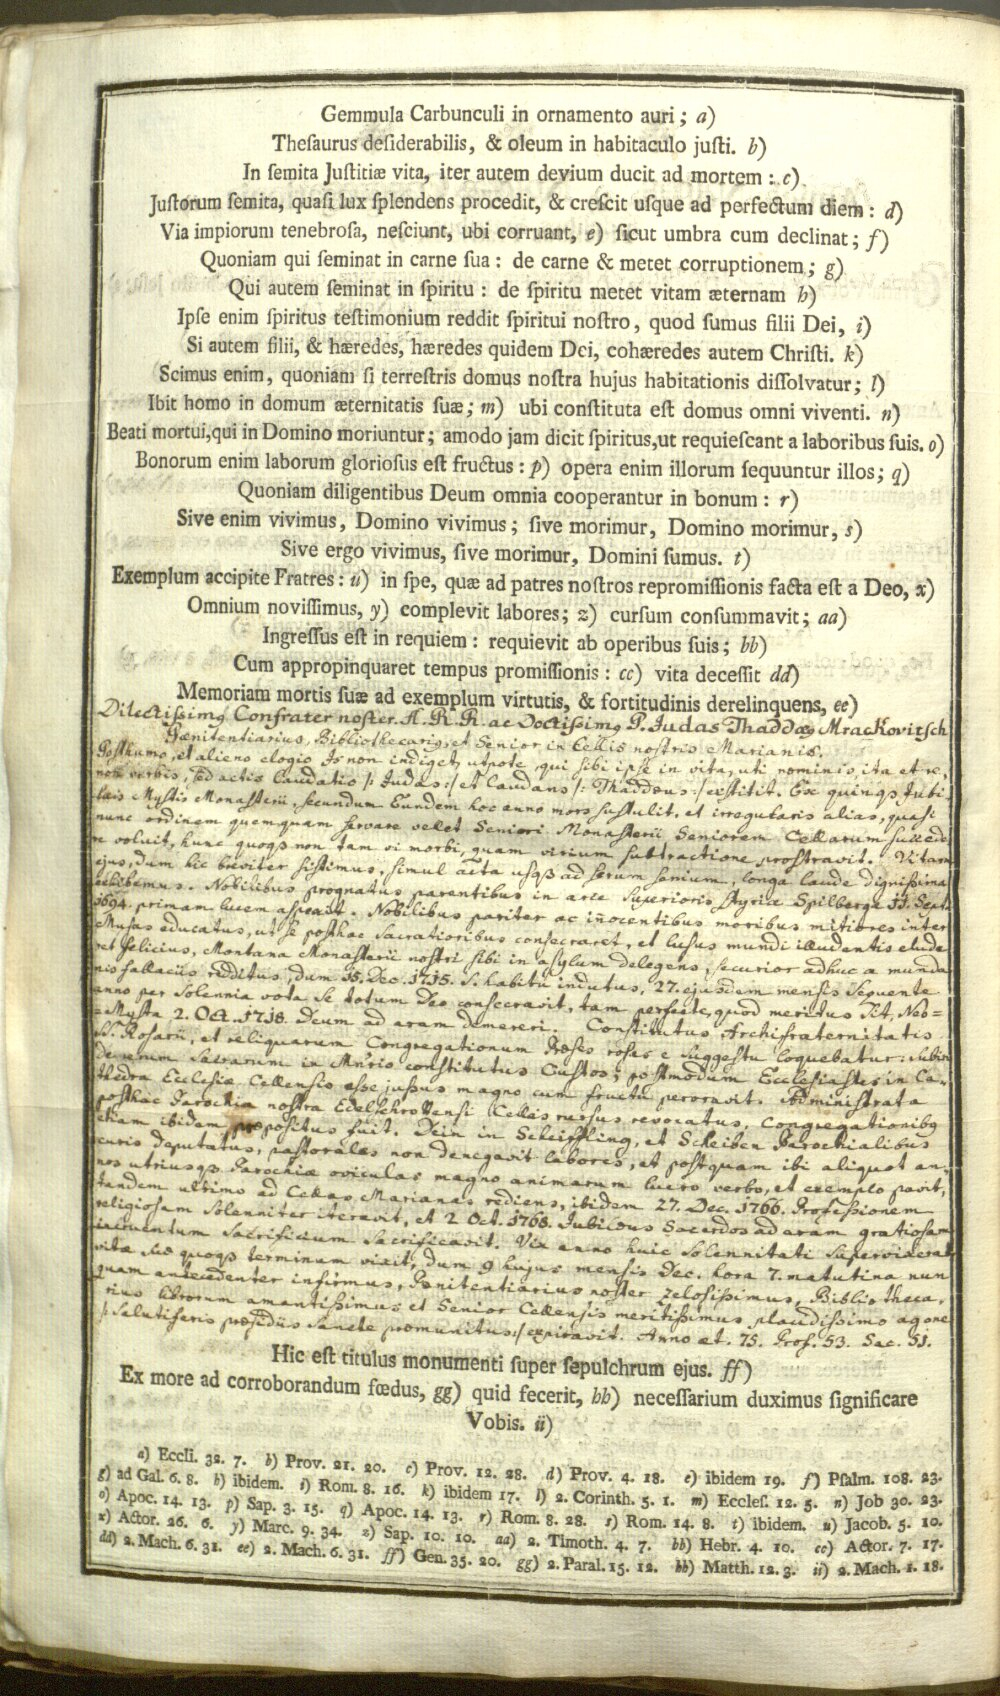 Gemmula Carbunculi in ornamento auri; a)
Theſaurus deſiderabilis, & oleum in habitaculo juſti. b)
In ſemita Juſtitiæ vita, iter autem devium ducit ad mortem: c)
Juſtorum ſemita, quaſi lux ſplendens procedit, & creſcit uſque ad perfectum diem: d)
Via impiorum tenebroſa, neſciunt, ubi corruant, e) ſicut umbra cum declinat; f)
Quoniam qui ſeminat in carne ſua: de carne & metet corruptionem; g)
Qui autem ſeminat in ſpiritu: de ſpiritu metet vitam æternam h)
Ipſe enim ſpiritus teſtimonium reddit ſpiritui noſtro, quod ſumus filii Dei, i)
Si autem filii, & hæredes, hæredes quidem Dei, cohæredes autem Chriſti. k)
Scimus enim, quoniam ſi terreſtris domus noſtra hujus habitationis diſſolvatur; l)
Ibit homo in domum æternitatis ſuæ; m) ubi conſtituta eſt domus omni viventi. n)
Beati mortui, qui in Domino moriuntur; amodo jam dicit ſpiritus, ut requieſcant a laboribus ſuis. o)
Bonorum enim laborum glorioſus eſt fructus: p) opera enim illorum ſequuntur illos; q)
Quoniam diligentibus Deum omnia cooperantur in bonum: r)
Sive enim vivimus, Domino vivimus; ſive morimur, Domino morimur, s)
Sive ergo vivimus, ſive morimur, Domini ſumus. t)
Exemplum accipite Fratres: u) in ſpe, quæ ad patres noſtros repromiſſionis facta eſt a Deo, x)
Omnium noviſſimus, y) complevit labores; z) curſum conſummavit; aa)
Ingreſſus eſt in requiem: requievit ab operibus ſuis; bb)
Cum appropinquaret tempus promiſſionis: cc) vita deceſſit dd)
Memoriam mortis ſuæ ad exemplum virtutis, & fortitudinis derelinquens, ee)
Dilectissimꝰ Confrater noster A. R. R. ac Doctissimꝰ P. Judas Thaddæꝰ Mrackovitsch
Pœnitentiarius, Bibliothecariꝰ, et Senior in Cellis nostris Marianis.
Posthumo, et alieno elogio Is non indiget, utpote, qui sibi ipse in vita, uti nominis, ita et re,
non verbis, sed actis laudatio /: Judas :/ et laudans /: Thaddæus :/ extitit. Ex quinqꝫ Jubi-
læis Mystis Monasterii, secundum Eundem hoc anno mors sustulit, et irregularis alias, quasi
nunc ordinem quemquam servare vellet Seniori Monasterii Seniorem Cellarum succede-
re voluit, hunc quoqꝫ non tam vi morbi, quam virium subtractione prostravit. Vitam
ejus, dum hic breviter sistimus, simul acta usqꝫ ad serum senium, longa laude dignissima
exhibemus. Nobilibus prognatus parentibus in arce Superioris Styriæ Spilberga 11. Sept.
1694. primam lucem aspexit. Nobilibus pariter ac iñocentibus moribus mitiores inter
Musas educatus, ut se posthac Sacratioribus consecraret, et lusus mundi illudentis elude-
ret felicius, Montana Monasterii nostri sibi in asylum delegens, securior adhuc a munda-
nis fallaciis redditus, dum 15. Dec. 1715. S. habitu indutus, 27. ejusdem mensis sequente
anno per Solennia vota Se totum Deo consecravit, tam perfecte, quod meritus sit, Neo-
=Mysta 2. Oct. 1718. Deum ad aram demereri. Constitutus Archifraternitatis
SS. Rosarii, et reliquarum Congregationum Præses roses e suggestu loquebatur: subin
deverum Sacrarum in constitutus Custos; postmodum Ecclesiastes in Ca-
thedra Ecclesiæ Cellensis esse jussus magno cum fructu peroravit. Administrata
posthac Parochia nostra Edelschrottensi Cellas rursus revocatus, Congregationibꝰ
etiam ibidem præpositus fuit. Dein in Scheiffling, et Scheiben Parochialibus
curis deputatus, pastorales non denegavit labores, et postquam ibi aliquot an-
nos utriusqꝫ Parochiæ oviculas magno animarum lucro verbo, et exemplo pavit,
tandem ultimo ad Cellas Marianas rediens, ibidem 27. Dec. 1766. Professionem
religiosam Solenniter iteravit, et 2 Oct. 1768. Jubilæus Sacerdos ad aram gratiosam
incruentum Sacrificium Sacrificavit. Vix anno huic Solennitati supervixerat,
vitæ suæ quoqꝫ terminum vixit, dum 9 hujus mensis Dec. hora 7. matutina nun
quam antecedenter infirmus, Pœnitentiarius noster zelosissimus, Bibliotheca,
rius librorum amantissimus et Senior Cellensis meritissimus placidissimo agone
/: Salutiferis præsidiis sancte præmunitus :/ expiravit. Anno æt. 75. Prof. 53. Sac. 51.
Hic eſt titulus monumenti ſuper ſepulchrum ejus. ff)
Ex more ad corroborandum fœdus, gg) quid fecerit, hh) neceſſarium duximus ſignificare
Vobis. ii)
a) Eccli. 32. 7. b) Prov. 21. 20. c) Prov. 12. 28. d) Prov. 4. 18. e) ibidem 19. f) Pſalm. 108. 23.
g) ad Gal. 6. 8. h) ibidem. i) Rom. 8. 16. k) ibidem 17. l) 2. Corinth. 5. 1. m) Eccleſ. 12. 5. n) Job 30. 23.
o) Apoc. 14. 13. p) Sap. 3. 15. q) Apoc. 14. 13. r) Rom. 8. 28. s) Rom. 14. 8. t) ibidem. u) Jacob. 5. 10.
x) Actor. 26. 6. y) Marc. 9. 34. z) Sap. 10. 10. aa) 2. Timoth. 4. 7. bb) Hebr. 4. 10. cc) Actor. 7. 17.
dd) 2. Mach. 6. 31. ee) 2. Mach. 6. 31. ff) Gen. 35. 20. gg) 2. Paral. 15. 12. hh) Matth. 12. 3. ii) 2. Mach. 1. 18.